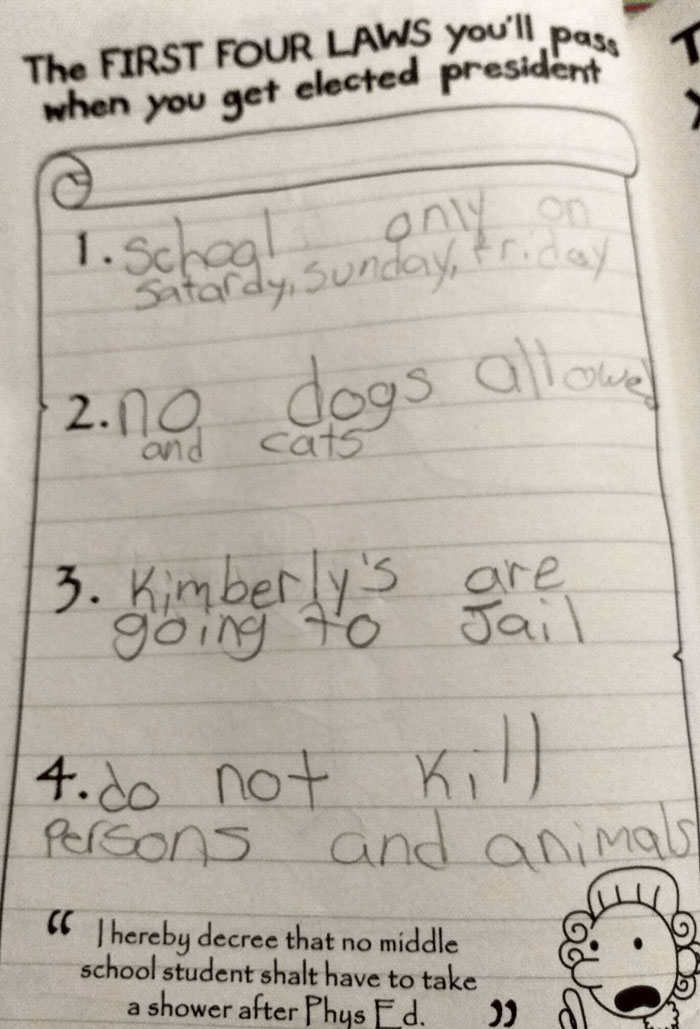 The FIRST FOUR LAWS you'll pass
when you get elected president
1. School only on
Satardy, Sunday, friday
2. no dogs allowed
and cats
3. Kimberly's are
going to Jail
4. do not kill
Persons and animals
“ I hereby decree that no middle
school student shalt have to take
a shower after Phys Ed. ”